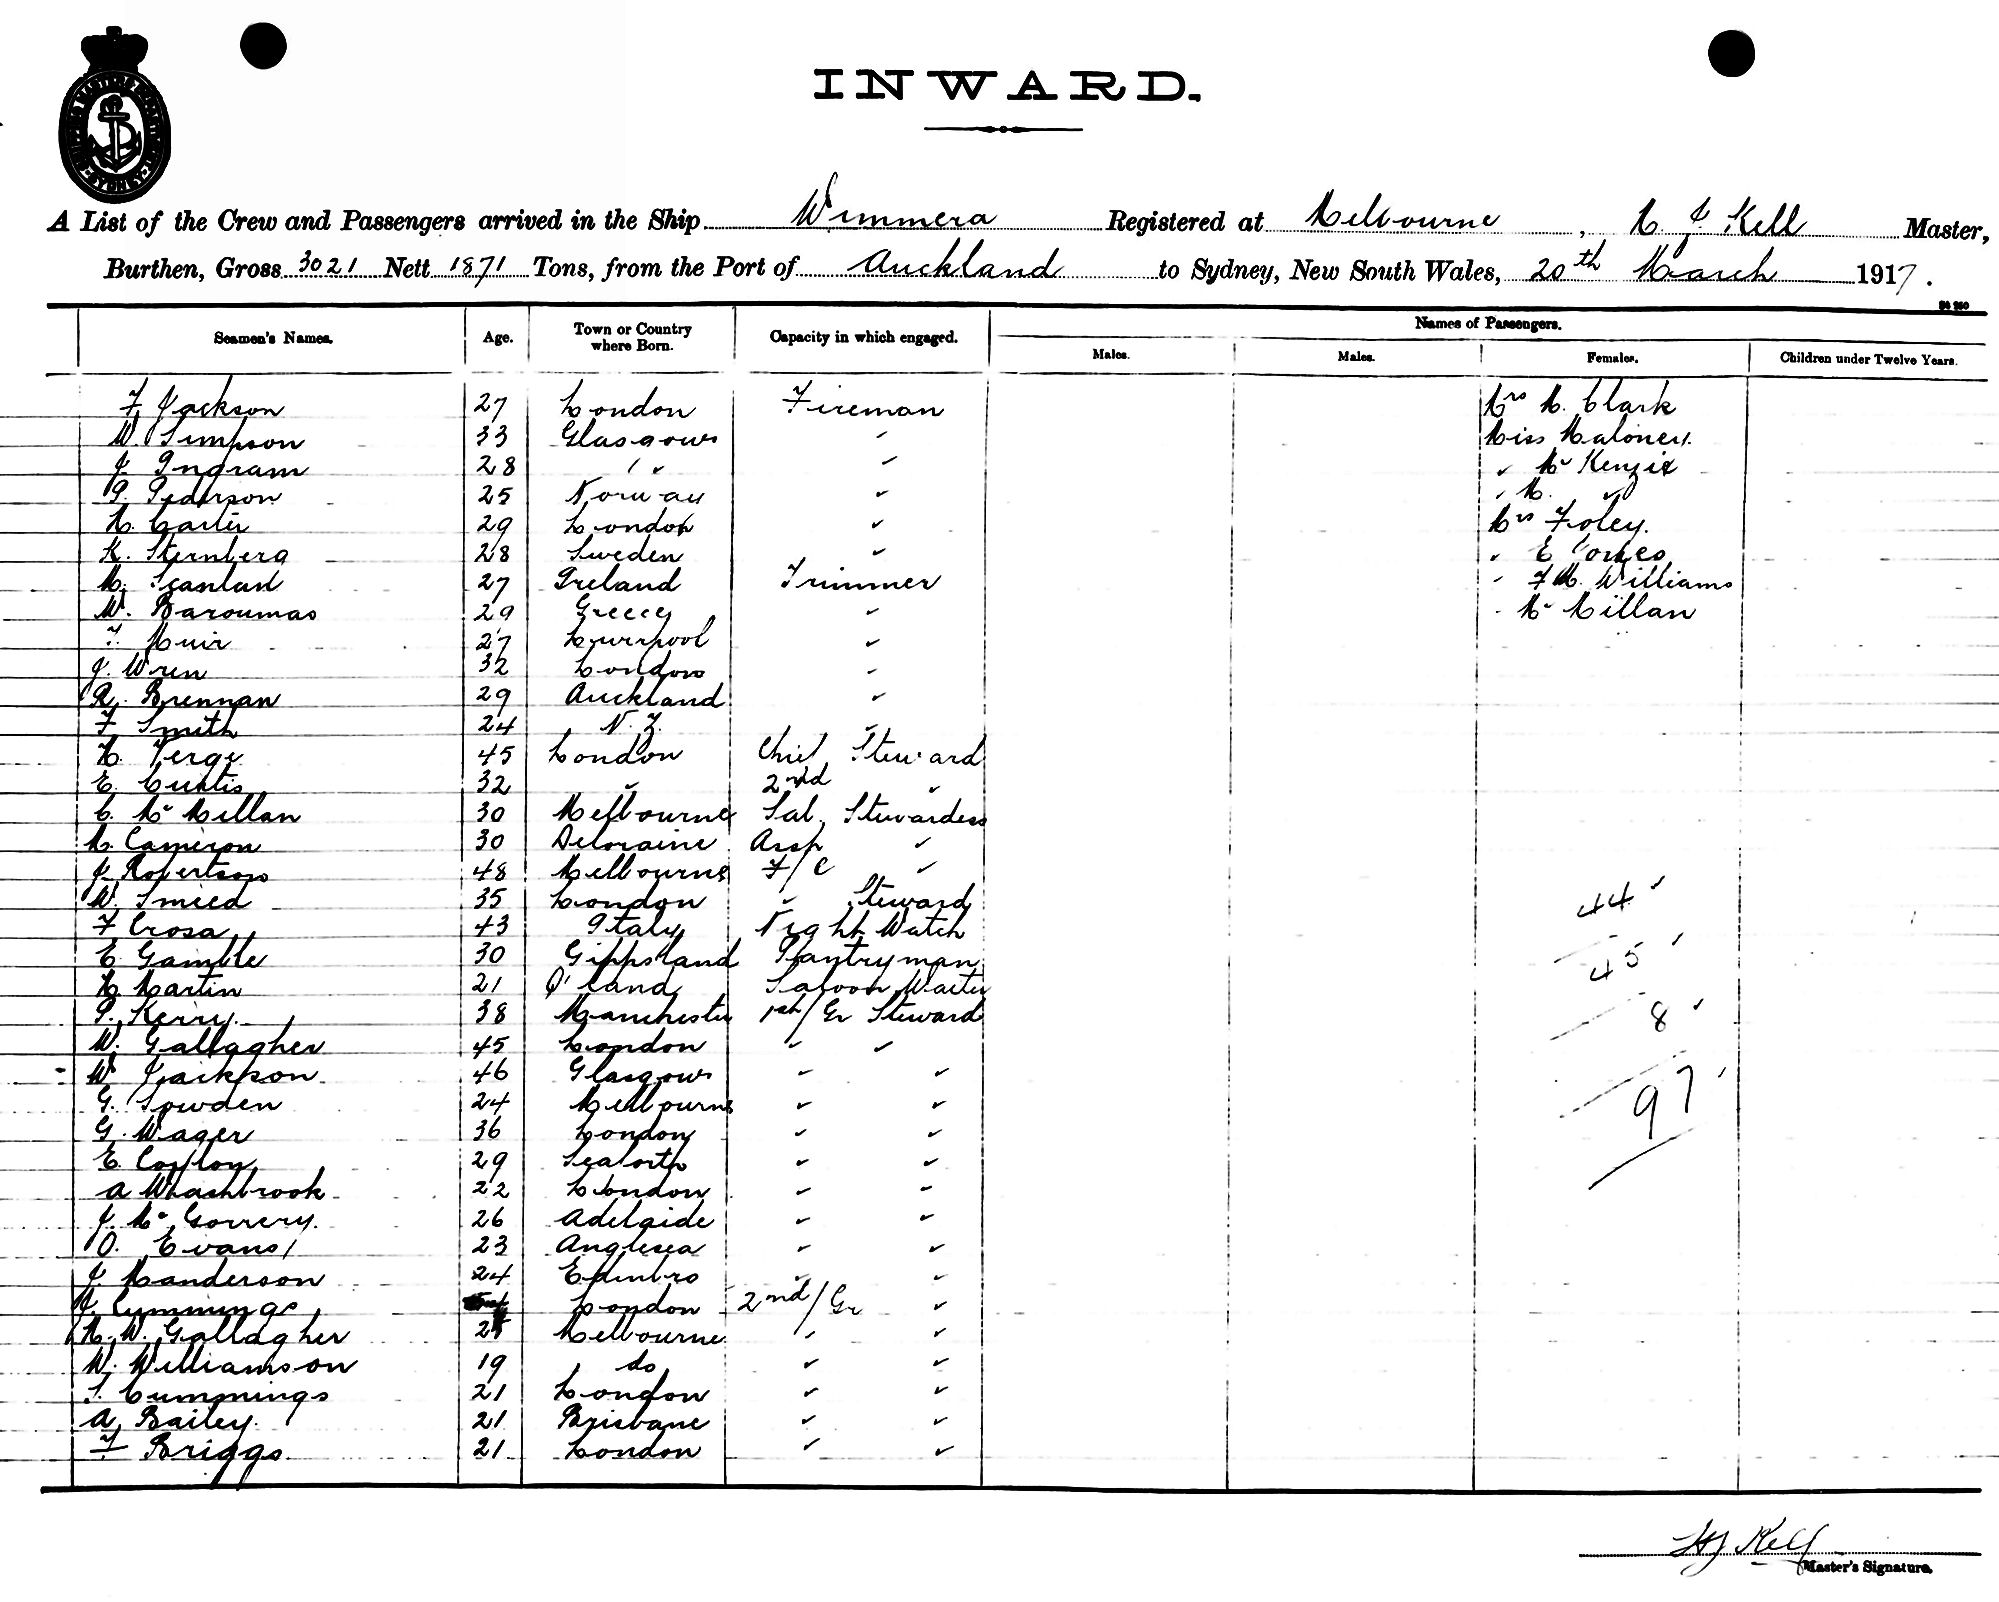 INWARD.
A List of the Crew and Passengers arrived in the Ship Wimmera Registered at Melbourne, H J Kell Master,
Burthen, Gross 3021 Nett 1871 Tons, from the Port of Auckland to Sydney, New South Wales, 20th March 1917.
Names of Passengers.
Seamen's Names. Age. Town or Country where Born. Capacity in which engaged. Males. Males. Females. Children under Twelve Years.
F Jackson 27 London Fireman Mrs M. Clark
W. Simpson 33 Glasgow " Miss Maloney.
J. Ingram 28 " " " Mc Kenzie
P. Pederson 25 Norway " " M. "
H. Carter 29 London " Mrs Foley.
K. Sternberg 28 Sweden " " E
M. Scanlan 27 Ireland Trimmer " F M. Williams
W. Baroumas 29 Greece " " Mc Millan
F. Muir 27 Liverpool "
J. Wren 32 London "
R. Brennan 29 Auckland "
F Smith 24 N. Z. "
H. 45 London Chief Steward
E. Curtis 32 " 2nd "
C. Mc Millan 30 Melbourne Sal. Stewardess
M. Cameron 30 Deloraine Asst "
J. Robertson 48 Melbourne F/C "
W. Smeed 35 London " Steward
F Crosa 43 Italy Night Watch
E. Gamble 30 Gippsland Pantryman 44
H Martin 21 Q'land Saloon Waiter 45
P. Kerry. 38 Manchester 1st/Gr Steward 8
W. Gallagher 45 London " "
W Jackson. 46 Glasgow " " 97
G. Sowden 24 Melbourne " "
G. Wager 36 London " "
E. 29 Seaforth " "
A Whashbrook 22 London " "
J. Mc Gorrery. 26 Adelaide " "
O. Evans 23 Anglesea " "
J. Handerson 24 Edinbro " "
J. Cummings London 2nd/Gr "
H. W. Gallagher Melbourne " "
W. Williamson 19 do " "
S. Cummings 21 London " "
A. Bailey. 21 Brisbane " "
F Briggs. 21 London " "
HJ Kell
Master's Signature.